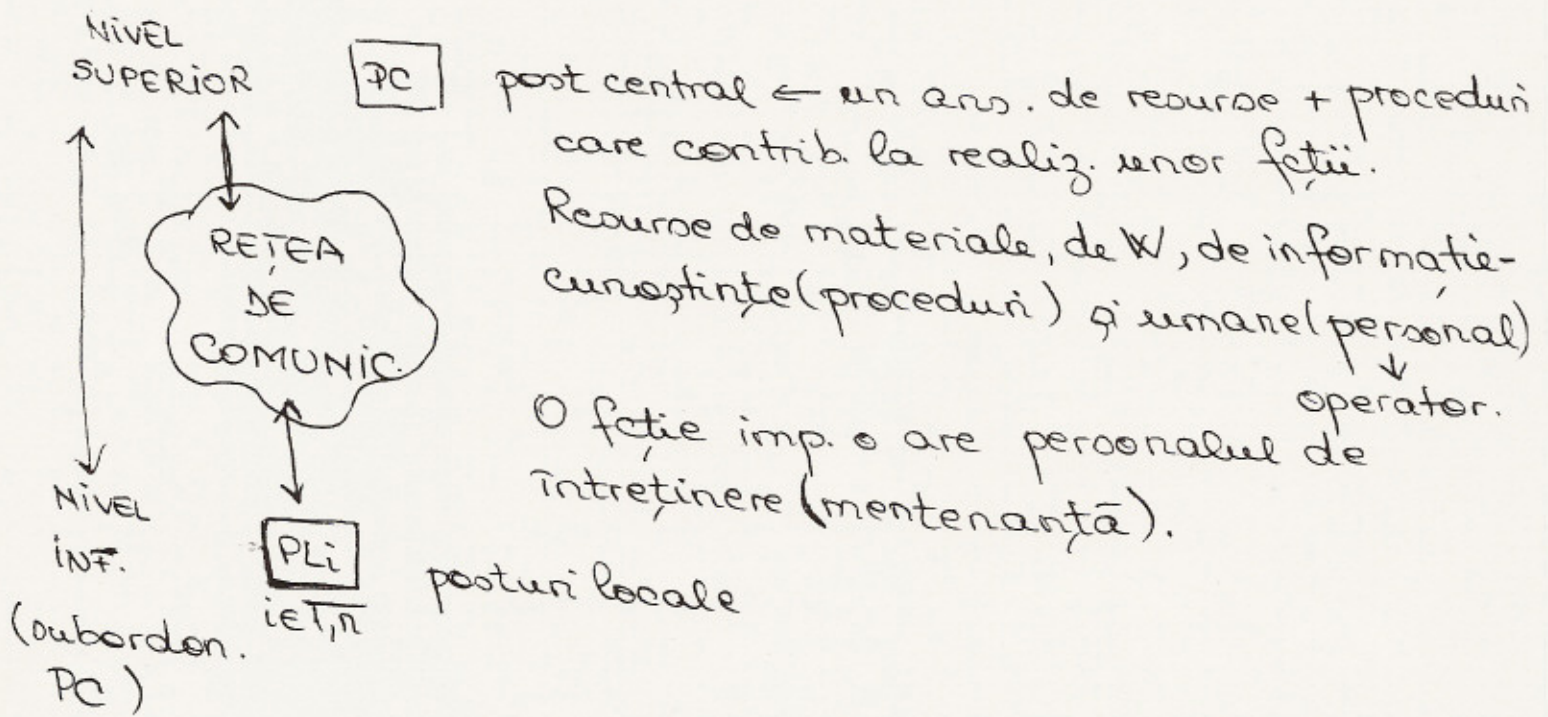 NIVEL
SUPERIOR
PC
post central ← un ans. de resurse + proceduri
care contrib. la realiz. unor fcții.
Resurse de materiale, de W, de informație-
cunoștințe (proceduri) și umane (personal)
↓
operator.
REȚEA
DE
COMUNIC.
O fcție imp. o are personalul de
întreținere (mentenanță).
NIVEL
INF.
(subordon.
PC)
PLi
i∈1,n
posturi locale